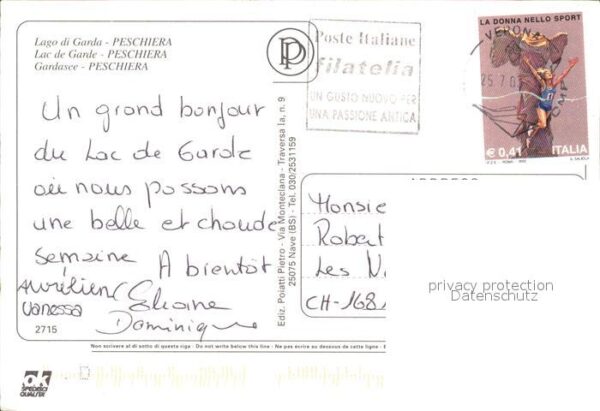 Lago di Garda - PESCHIERA
Lac de Garde - PESCHIERA
Gardasee - PESCHIERA
Un grand bonjour
du Lac de Garde
où nous passons
une belle et chaude
semaine A bientôt
Aurélien
Vanessa
Dominique
2715
Ediz. Poiatti Pietro - Via Monteclana - Traversa Ia, n. 9
25075 Nave (BS) - Tel. 030/2531159
Poste Italiane
filatelia
UN GUSTO NUOVO PER
UNA PASSIONE ANTICA
VERONA
LA DONNA NELLO SPORT
€ 0,41 ITALIA
Monsie
Robert
Les
CH-168
privacy protection
Datenschutz
Non scrivere al di sotto di questa riga - Do not write below this line - Ne pas écrire au dessous de cette ligne
ok
SPEDISCI
QUALITÀ